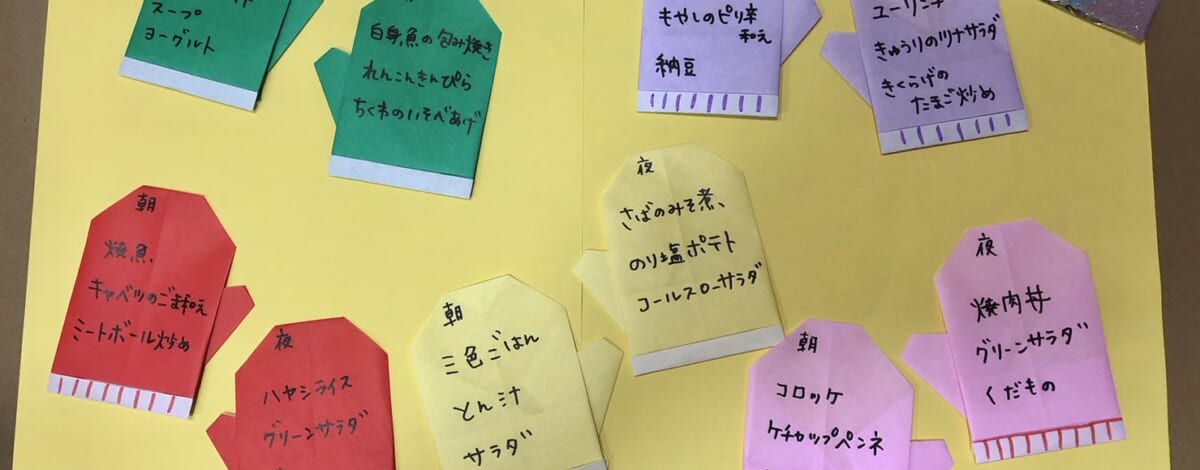 スープ
ヨーグルト
自身魚の包み焼き
れんこんきんぴら
ちくわのいそべあげ
もやしのピリ辛
和え
納豆
ユーリンチ
きゅうりのツナサラダ
きくらげの
たまご炒め
朝
焼魚
キャベツのごま和え
ミートボール炒め
夜
ハヤシライス
グリーンサラダ
朝
三色ごはん
とん汁
サラダ
夜
さばのみそ煮
のり塩ポテト
コールスローサラダ
朝
コロッケ
ケチャップペンネ
夜
焼肉丼
グリーンサラダ
くだもの